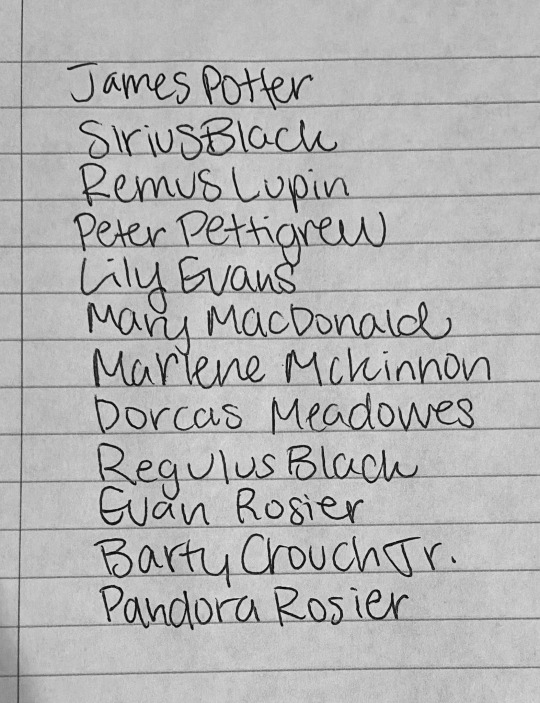 James Potter
Sirius Black
Remus Lupin
Peter Pettigrew
Lily Evans
Mary MacDonald
Marlene Mckinnon
Dorcas Meadowes
Regulus Black
Evan Rosier
Barty Crouch Jr.
Pandora Rosier